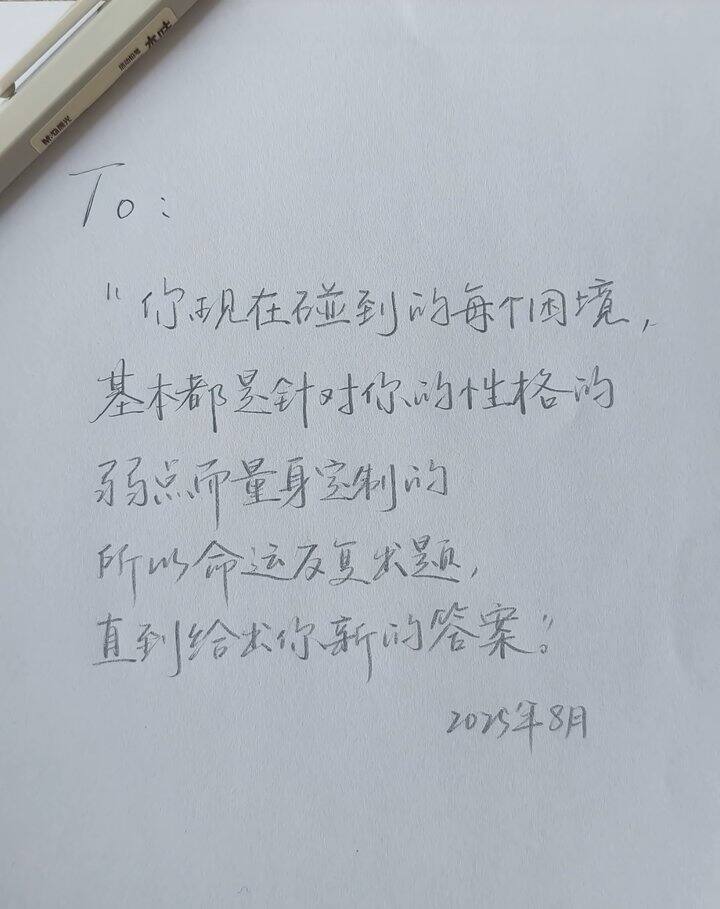 To:
"你现在碰到的每个困境,
基本都是针对你的性格的
弱点而量身定制的
所以命运反复出题,
直到给出你新的答案。"
2025年8月
M&G晨光